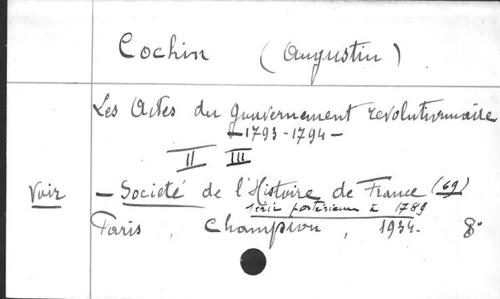 Cochin (Augustin)
Les Actes du gouvernement revolutionnaire
-1793-1794-
II III
Voir - Societé de l'Histoire de France (69)
série postérieure à 1789
Paris, Champion, 1934. 8°